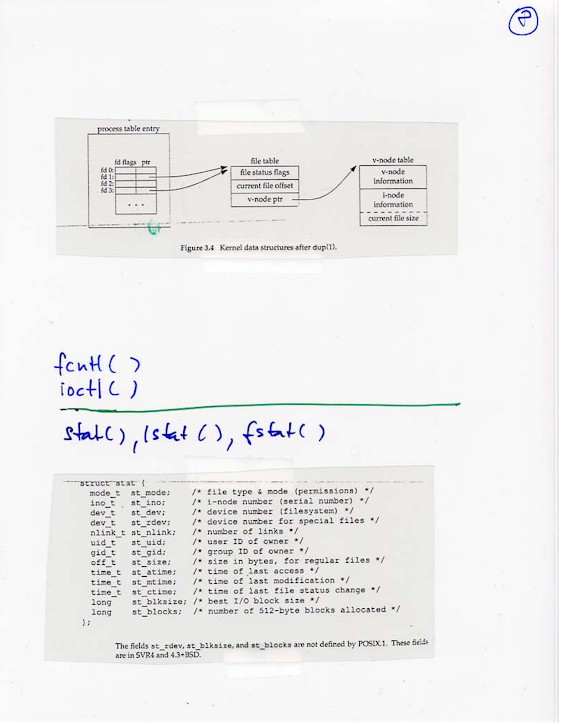 2
process table entry
fd flags ptr
fd 0:
fd 1:
fd 2:
fd 3:
. . .
file table
file status flags
current file offset
v-node ptr
v-node table
v-node
information
i-node
information
current file size
Figure 3.4 Kernel data structures after dup(1).
fcntl( )
ioctl( )
stat(), lstat (), fstat( )
struct stat {
mode_t st_mode; /* file type & mode (permissions) */
ino_t st_ino; /* i-node number (serial number) */
dev_t st_dev; /* device number (filesystem) */
dev_t st_rdev; /* device number for special files */
nlink_t st_nlink; /* number of links */
uid_t st_uid; /* user ID of owner */
gid_t st_gid; /* group ID of owner */
off_t st_size; /* size in bytes, for regular files */
time_t st_atime; /* time of last access */
time_t st_mtime; /* time of last modification */
time_t st_ctime; /* time of last file status change */
long st_blksize; /* best I/O block size */
long st_blocks; /* number of 512-byte blocks allocated */
};
The fields st_rdev, st_blksize, and st_blocks are not defined by POSIX.1. These fields
are in SVR4 and 4.3+BSD.